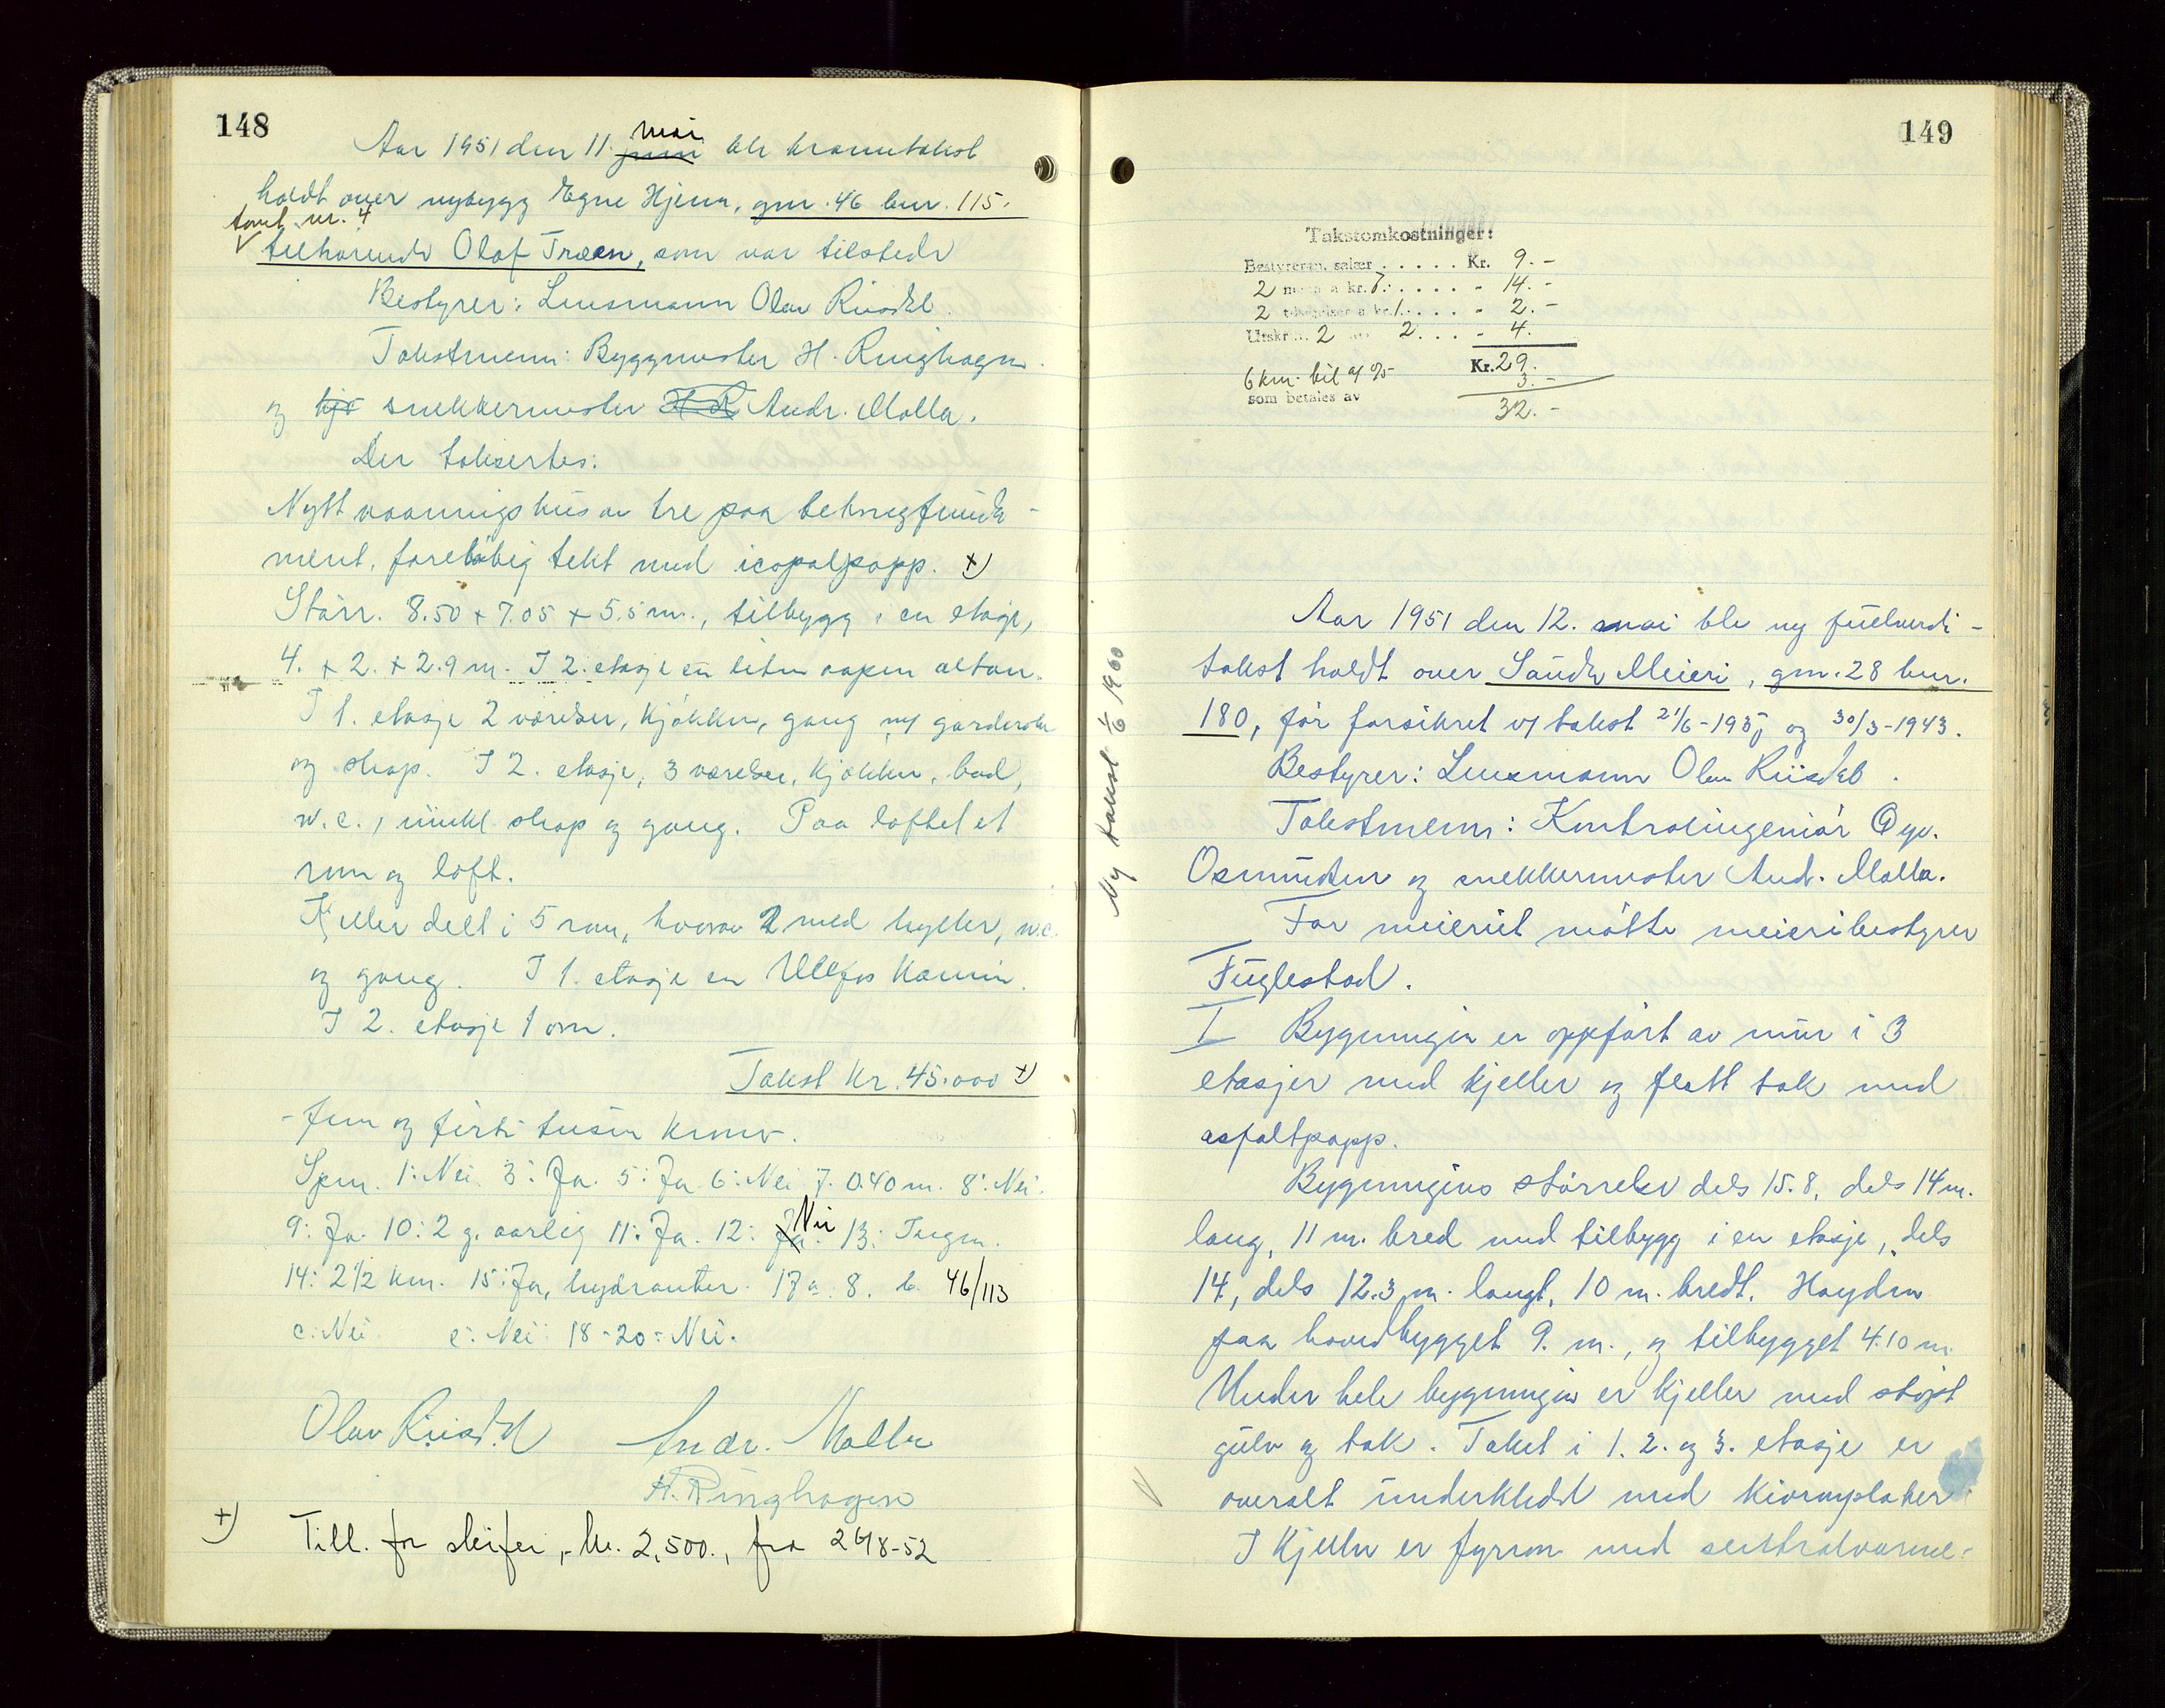 148
Aar 1951 den 11. juni mai ble branntakst
holdt over nybygg Egne Hjem, gnr. 46 bnr. 115.
tomt nr. 4
tilhørende Olaf Træen, som var tilstede
Bestyrer: Lensmann Olav Risdal
Takstmenn: Byggmester H. Ringhagen
og snekkermester H R Andr. Molla.
Der taksertes:
Nytt vaaningshus av tre paa betongfunda-
ment, foreløbig tekt med icopalpapp. +)
Størr. 8.50 + 7.05 + 5.5 m., tilbygg i en etasje,
4. + 2. + 2.9 m. I 2. etasje en liten aapen altan.
I 1. etasje 2 værelser, kjøkken, gang m/ garderobe
og skap. I 2. etasje, 3 værelser, kjøkken, bad,
w.c., innkl. skap og gang. Paa loftet et
rum og loft.
Kjeller delt i 5 rum, hvorav 2 med hyller, w.c.
og gang. I 1. etasje en Ullefos kamin.
I 2. etasje 1 ovn.
Takst kr. 45.000 +)
- fem og førti tusen kroner.
Spm. 1: Nei 3: Ja. 5: Ja 6: Nei 7. 0.40 m. 8: Nei.
9: Ja. 10: 2 g. aarlig 11: Ja. 12: Ja. Nei 13: Ingen.
14: 2 1/2 km. 15: Ja, hydranter. 17 a. 8. b. 46/113
c: Nei. e: Nei 18-20: Nei.
Olav Risdal Andr. Molla
H. Ringhagen
+) Till. for skifer, kr. 2,500., fra 26/8-52
149
Takstomkostninger:
Bestyrerens salær . . . . . Kr. 9.-
2 menn a kr. 7. . . . . - 14.-
2 a kr. 1. . . . . - 2.-
Utskr. 2 2 . . . - 4.
Kr. 29.
6 km. bil a/ 3.-
som betales av
32.-
Ny takst 1/6 1960
Aar 1951 den 12. mai ble ny fullverdi-
takst holdt over Sande Meieri, gnr. 28 bnr.
180, før forsikret v/ takst 21/6-1935 og 30/3-1943.
Bestyrer: Lensmann Olav Risdal.
Takstmenn: Kontrolingeniør
Osmundsen og snekkermester And. Molla.
For meieriet møtte meieribestyrer
Fuglestad.
I Bygningen er oppført av mur i 3
etasjer med kjeller og flatt tak med
asfaltpapp.
Bygningens størrelse dels 15.8, dels 14 m.
lang, 11 m. bred med tilbygg i en etasje, dels
14, dels 12.3 m. langt, 10 m. bredt. Høyden
paa hovedbygget 9. m., og tilbygget 4.10 m.
Under hele bygningen er kjeller med støpt
gulv og tak. Taket i 1. 2. og 3. etasje er
overalt underkledd med plater.
I kjeller er fyrrom med sentralvarme-